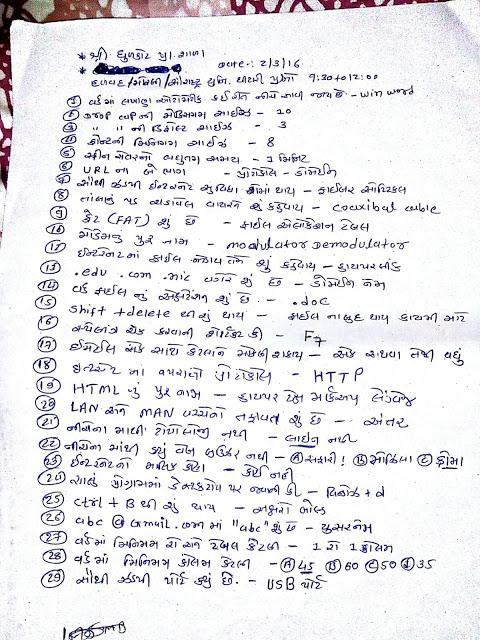 * શ્રી ધુળકોટ પ્રા. શાળા
Date :- 2/3/16
* હળવદ / મોરબી / સૌરાષ્ટ્ર યુનિ. 9:30 to 12:00
① વર્ડમાં નીચે - win word
② Drop cap ની મેક્સિમમ સાઈઝ - 10
③ " " ની ડિફોલ્ટ સાઈઝ - 3
④ ફોન્ટની મિનિમમ સાઈઝ - 8
⑤ સ્ક્રીન સેવરનો લઘુત્તમ સમય - 1 મિનિટ
⑥ URL ના બે ભાગ - પ્રોટોકોલ - ડોમેઈન
⑦ સૌથી ઝડપી ઈન્ટરનેટ સુવિધા શેમાં થાય - ફાઈબર ઓપ્ટિકલ
⑧ તાંબાનું પડ ચડાવેલ વાયરને શું કહેવાય - coaxibal cable
⑨ ફેટ (FAT) શું છે - ફાઈલ એલોકેશન ટેબલ
10 મોડેમનું પુરૂ નામ - modulator Demodulator
12 ઈન્ટરનેટમાં ફાઈલ શું કહેવાય - હાયપરલીંક
13 .edu .com .mic વગેરે શું છે - ડોમેઈન નેમ
14 વર્ડ ફાઈલ નું એક્ષ્ટેન્શન શું છે - .doc
15 Shift + delete થી શું થાય - ફાઈલ નાબુદ થાય કાયમી માટે
16 સ્પેલીંગ ચેક કરવાની શોર્ટકટ કી - F7
17 ઈમેઈલ એક સાથે કેટલાને મોકલી શકાય - એક અથવા તેથી વધુ
18 ઇન્ટરનેટ માં વપરાતો પ્રોટોકોલ - HTTP
19 HTML નું પુરૂ નામ - હાયપર ટેક્ષ્ટ માર્કઅપ લેંગ્વેજ
20 LAN અને MAN વચ્ચેનો તફાવત શું છે - અંતર
21 નીચેના માંથી ટોપોલોજી નથી - લાઈન નથી
22 નીચેના માંથી કયું વેબ બ્રાઉઝર નથી - Ⓐ સફારી! Ⓑ મોઝિલા Ⓒ ક્રોમા
23 ઈન્ટરનેટનો માલિક કોણ - કોઈ નહી
24 ચાલું પ્રોગ્રામમાં ડેસ્કટોપ પર જવાની કી - વિન્ડોઝ + d
25 ctrl + B થી શું થાય - અક્ષરો બોલ્ડ
26 abc @ Gmail.com માં "abc" શું છે - યુસરનેમ
27 વર્ડમાં મિનિમમ રો અને ટેબલ કેટલી - 1 રો 1 કોલમ
28 વર્ડ માં મિનિમમ કોલમ કેટલી - Ⓐ 45 Ⓑ 60 Ⓒ 50 Ⓓ 35
29 સૌથી ઝડપી પોર્ટ કયું છે. - USB પોર્ટ